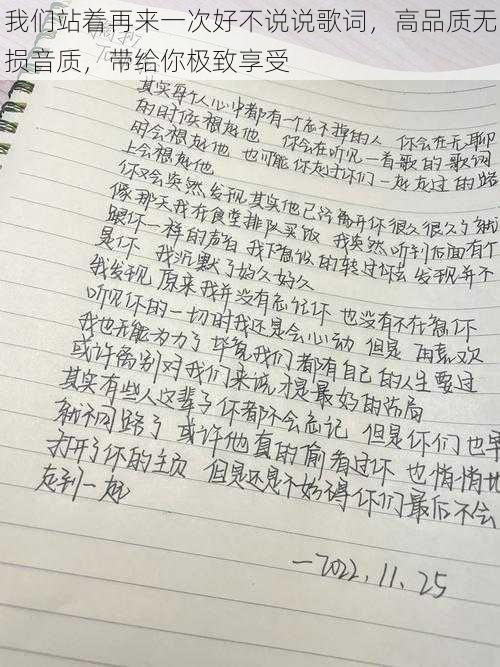 我们站着再来一次好不说说歌词，高品质无
损音质，带给你极致享受
其实每个人心中都有一个忘不掉的人 你会在无聊
的时候想起他 你会在听见一首歌的歌词
时会想起他 也可能你走过你们一起走过的路
上会想起他
你又会突然发现其实他已经离开你很久很久了就
像那天我在食堂排队买饭 我突然听到后面有个
跟你一样的声音 我下意识的转过你去发现并不
是你 我沉默了好久好久
我发现 原来我并没有忘记你 也没有不在智你
听见你的一切时我还是会心动 但是 再喜欢
我也无能为力了 毕竟我们都有自己的人生要过
或许离别对我们来说才是最好的结局
其实有些人这辈子你都不会忘记 但是你们也早
就不同路了 或许他真的偷看过你 也悄悄地
打开了你的主页 但是还是不妨碍你们最后不会
走到一起
—2022.11.25